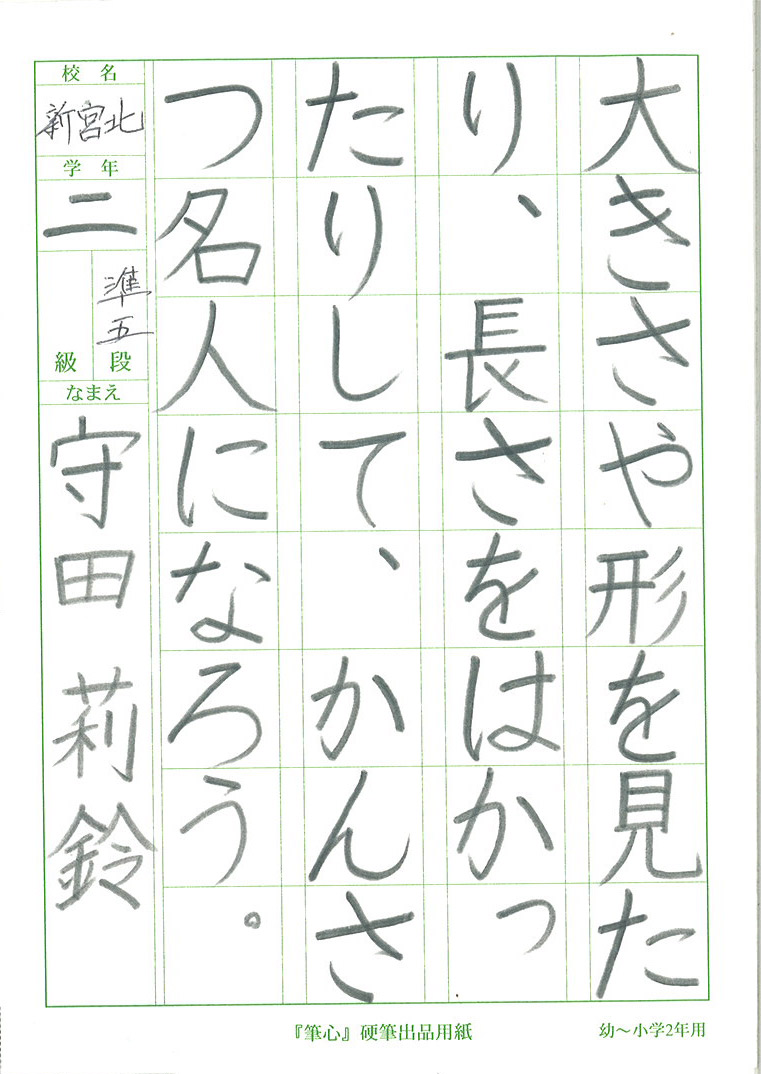 大きさや形を見た
り、長さをはかっ
たりして、かんさ
つ名人になろう。
校名
新宮北
学年
二
準五
段
級
なまえ
守田莉鈴
『筆心』硬筆出品用紙
幼～小学2年用